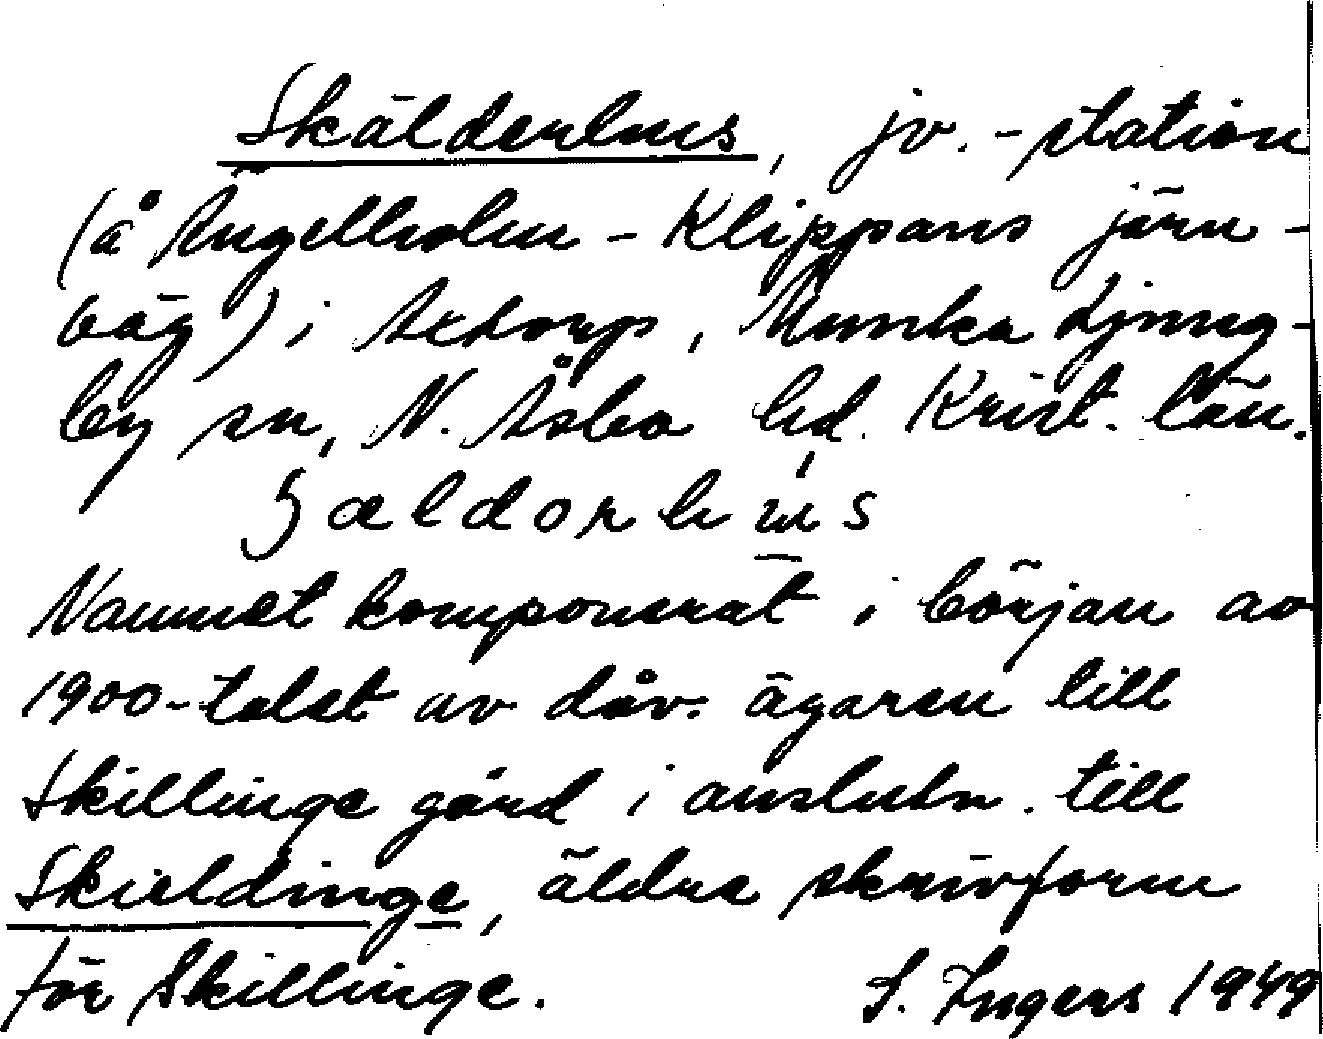 Skälderhus, jv.-station
(å Ängelholm - Klippans järn-
väg) i Axtorp, Munka Ljung-
by sn, N. Åsbo hd. Krist. län.
Namnet komponerat i början av
1900-talet av dåv. ägaren till
Skillinge gård i anslutn. till
Skieldinge, äldre skrivform
för Skillinge. I. Ingers 1949